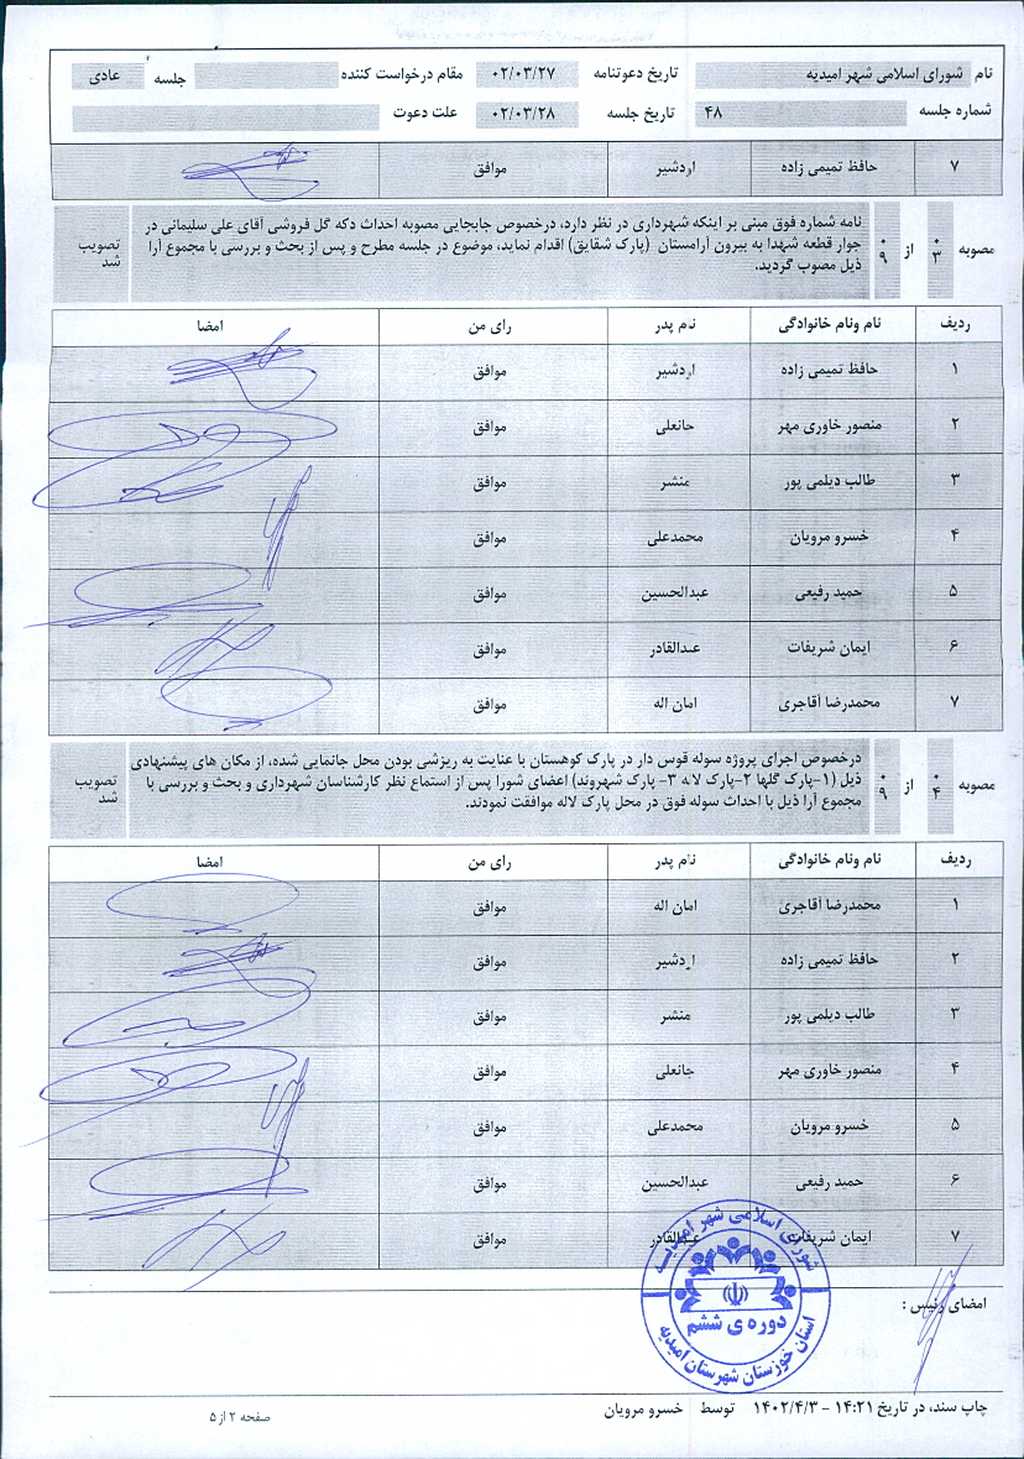 نام شورای اسلامی شهر امیدیه تاریخ دعوتنامه ۰۲/۰۳/۲۷ مقام درخواست کننده جلسه عادی
شماره جلسه ۴۸ تاریخ جلسه ۰۲/۰۳/۲۸ علت دعوت
۷ حافظ تمیمی زاده اردشیر موافق
مصوبه ۰۳ از ۰۹ نامه شماره فوق مبنی بر اینکه شهرداری در نظر دارد، درخصوص جابجایی مصوبه احداث دکه گل فروشی آقای علی سلیمانی در
جوار قطعه شهدا به بیرون آرامستان (پارک شقایق) اقدام نماید، موضوع در جلسه مطرح و پس از بحث و بررسی با مجموع آرا
ذیل مصوب گردید.
تصویب
شد
ردیف نام ونام خانوادگی نام پدر رای من امضا
۱ حافظ تمیمی زاده اردشیر موافق
۲ منصور خاوری مهر جانعلی موافق
۳ طالب دیلمی پور منشر موافق
۴ خسرو مرویان محمدعلی موافق
۵ حمید رفیعی عبدالحسین موافق
۶ ایمان شریفات عبدالقادر موافق
۷ محمدرضا آقاجری امان اله موافق
مصوبه ۰۴ از ۰۹ درخصوص اجرای پروژه سوله قوس دار در پارک کوهستان با عنایت به ریزشی بودن محل جانمایی شده، از مکان های پیشنهادی
ذیل (۱-پارک گلها ۲-پارک لاله ۳- پارک شهروند) اعضای شورا پس از استماع نظر کارشناسان شهرداری و بحث و بررسی با
مجموع آرا ذیل با احداث سوله فوق در محل پارک لاله موافقت نمودند.
تصویب
شد
ردیف نام ونام خانوادگی نام پدر رای من امضا
۱ محمدرضا آقاجری امان اله موافق
۲ حافظ تمیمی زاده اردشیر موافق
۳ طالب دیلمی پور منشر موافق
۴ منصور خاوری مهر جانعلی موافق
۵ خسرو مرویان محمدعلی موافق
۶ حمید رفیعی عبدالحسین موافق
۷ ایمان شریفات عبدالقادر موافق
شورای اسلامی شهر امیدیه
دوره ی ششم
استان خوزستان شهرستان امیدیه
امضای رئیس :
چاپ سند، در تاریخ ۱۴:۲۱ - ۱۴۰۲/۴/۳ توسط خسرو مرویان
صفحه ۲ از ۵